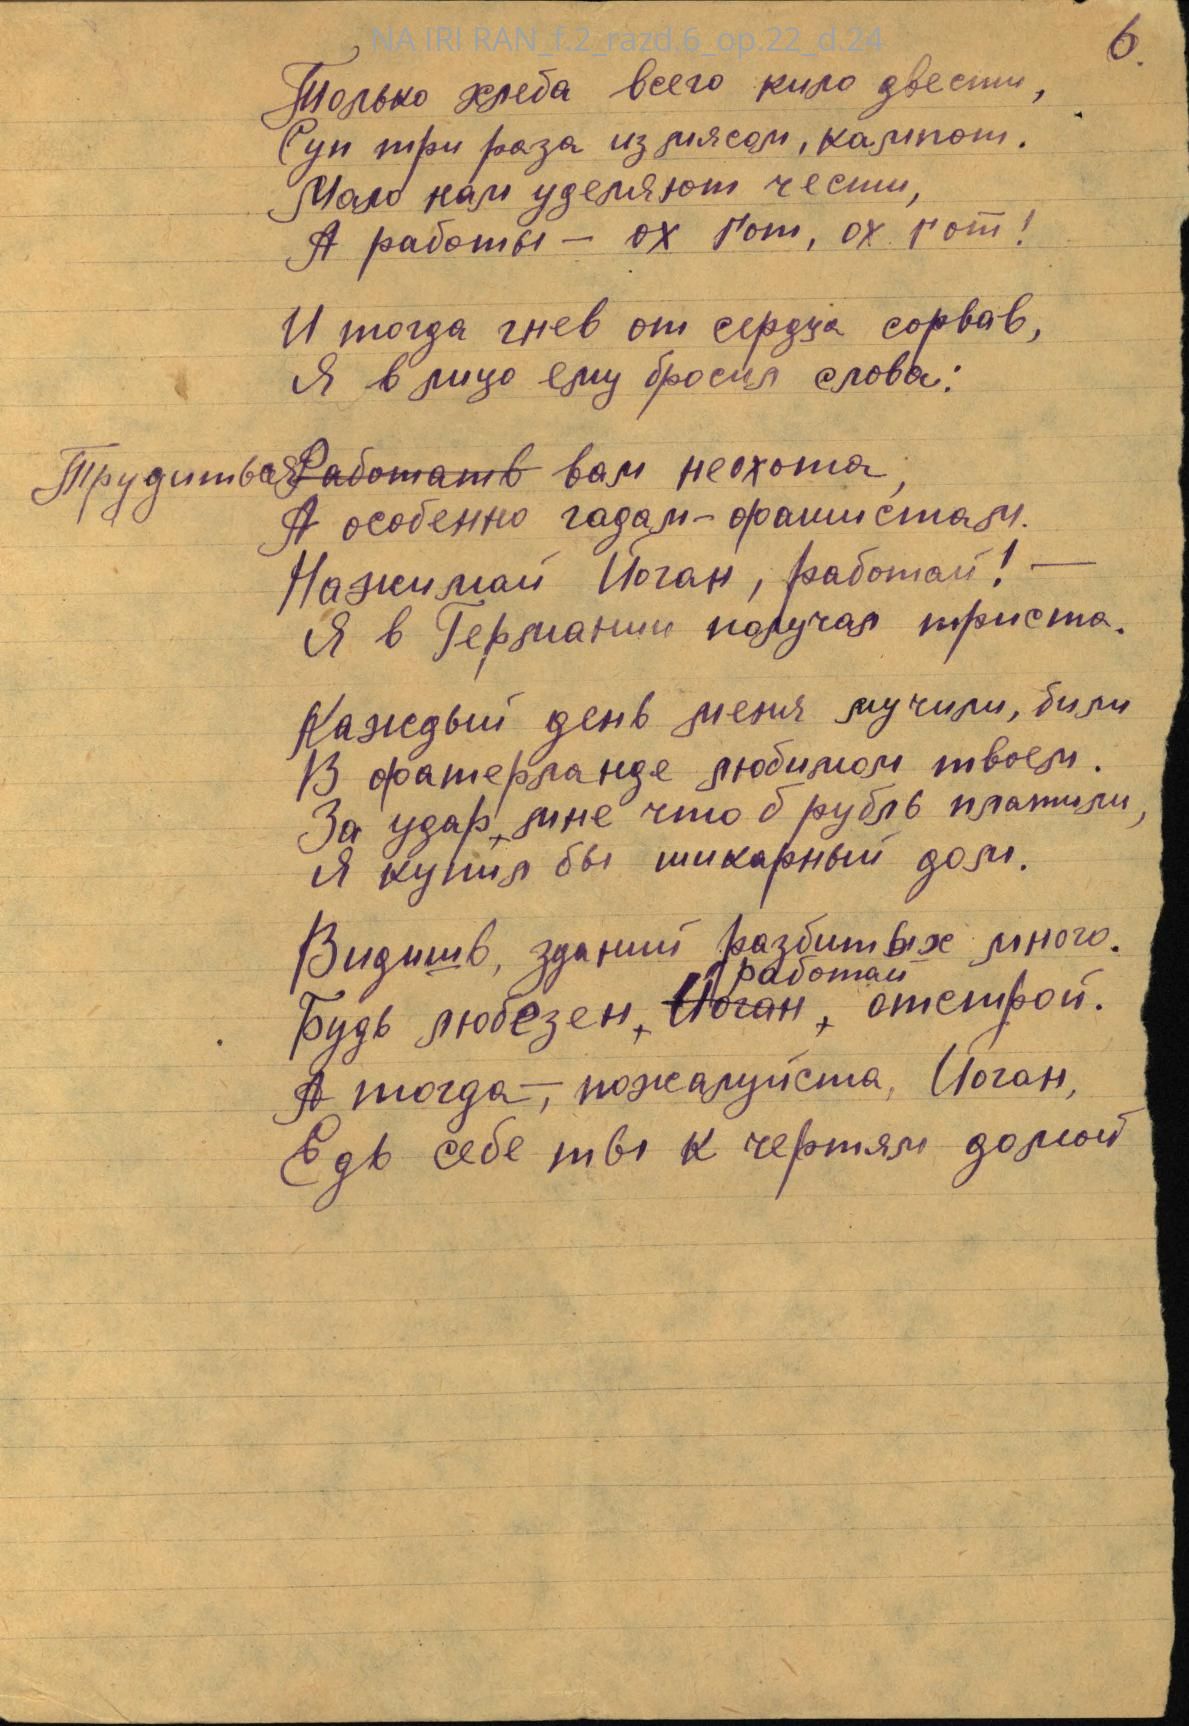 NA IRI RAN_f.2_razd.6_op.22_d.24
6.
Только хлеба всего кило двести,
Суп три раза из мясом, кампот.
Мало нам уделяют чести,
А работы – ох Гот, ох Гот!
И тогда гнев от сердца сорвав,
Я в лицо ему бросил слова:
Трудиться Работать вам неохота,
А особенно гадам-фашистам.
Нажимай Йоган, работай! —
Я в Германии получал триста.
Каждый день меня мучили, били
В фатерланде любимом твоем.
За удар, мне что б рубль платили,
Я купил бы шикарный дом.
Видишь, зданий разбитых много.
работай
Будь любезен, Йоган, отстрой.
А тогда –, пожалуйста, Йоган,
Едь себе ты к чертям домой